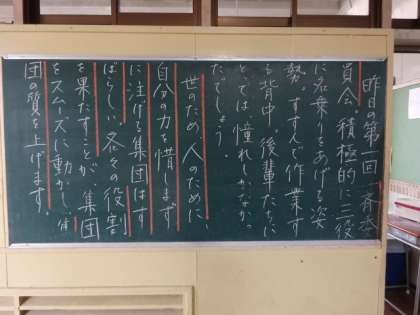 昨日の第一回一斉委
員会。積極的に三役
に名乗りをあげる姿
努。すすんで作業す
る背中。後輩たちに
とっては憧れしかなかっ
たでしょう。
世のため人のために、
自分の力を惜しまず
に注げる集団はす
ばらしい。各々の役割
を果たすことが、集団
をスムーズに動かし、
団の質を上げます。